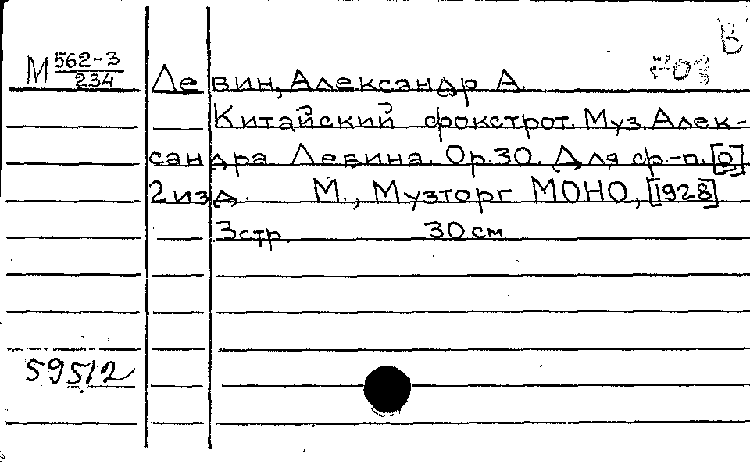 В
М 562-3/234
Левин, Александр А.
Китайский фокстрот. Муз. Алек-
сандра Левина. Op. 30. Для ф.-п. [0]
2 изд. М., Музторг МОНО, [1928]
3 стр. 30 см
59512